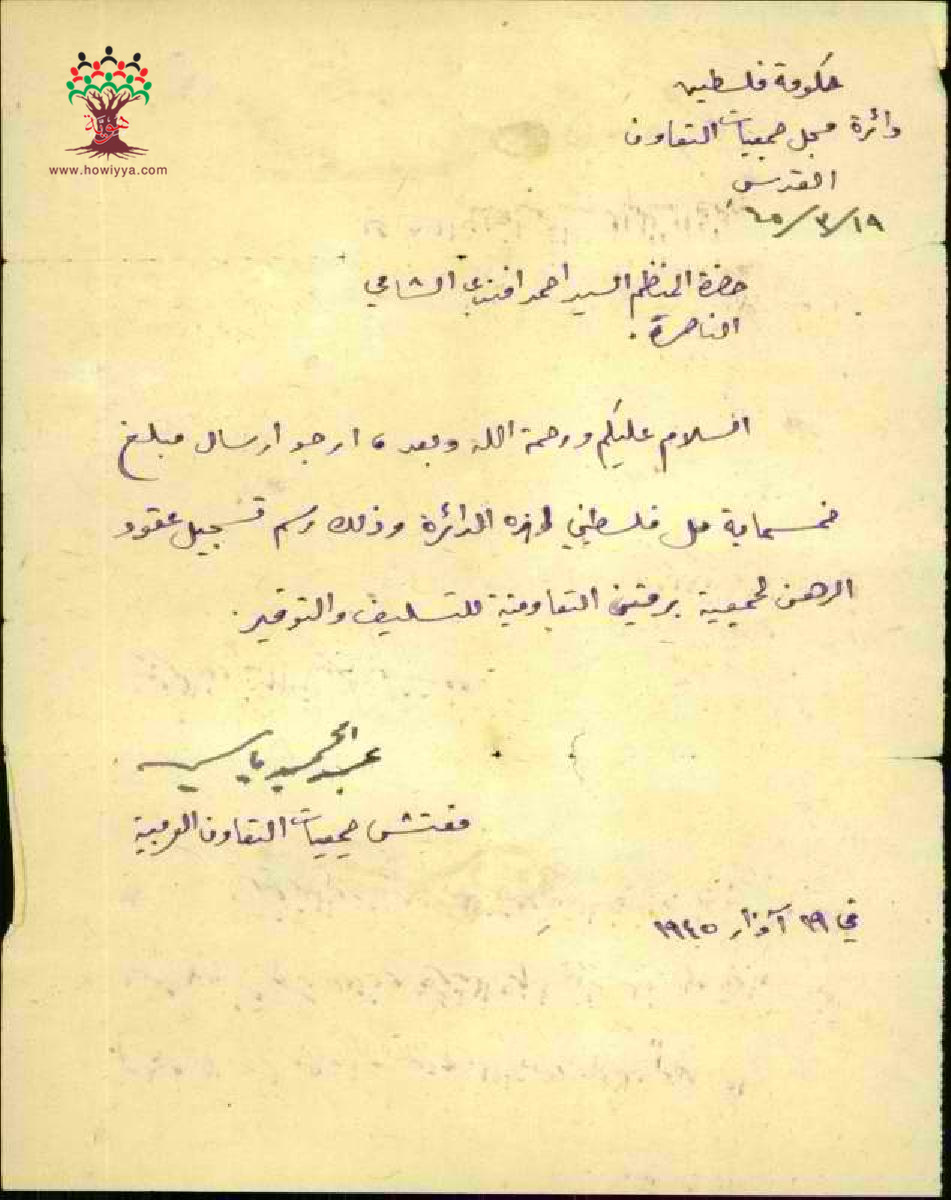 هوية
www.howiyya.com
حكومة فلسطين
دائرة مسجل جمعيات التعاون
القدس
١٩/٣/٤٥
حضرة المنظم السيد احمد افندي الشاعي
الناصرة .
السلام عليكم ورحمة الله وبعد ، ارجو ارسال مبلغ
خمسماية مل فلسطيني لهذه الدائرة وذلك رسم تسجيل عقود
الرهن لجمعية التعاونية للتسليف والتوفير .
عبد الحميد ياسين
مفتش جمعيات التعاون العربية
في ١٩ آذار ١٩٤٥